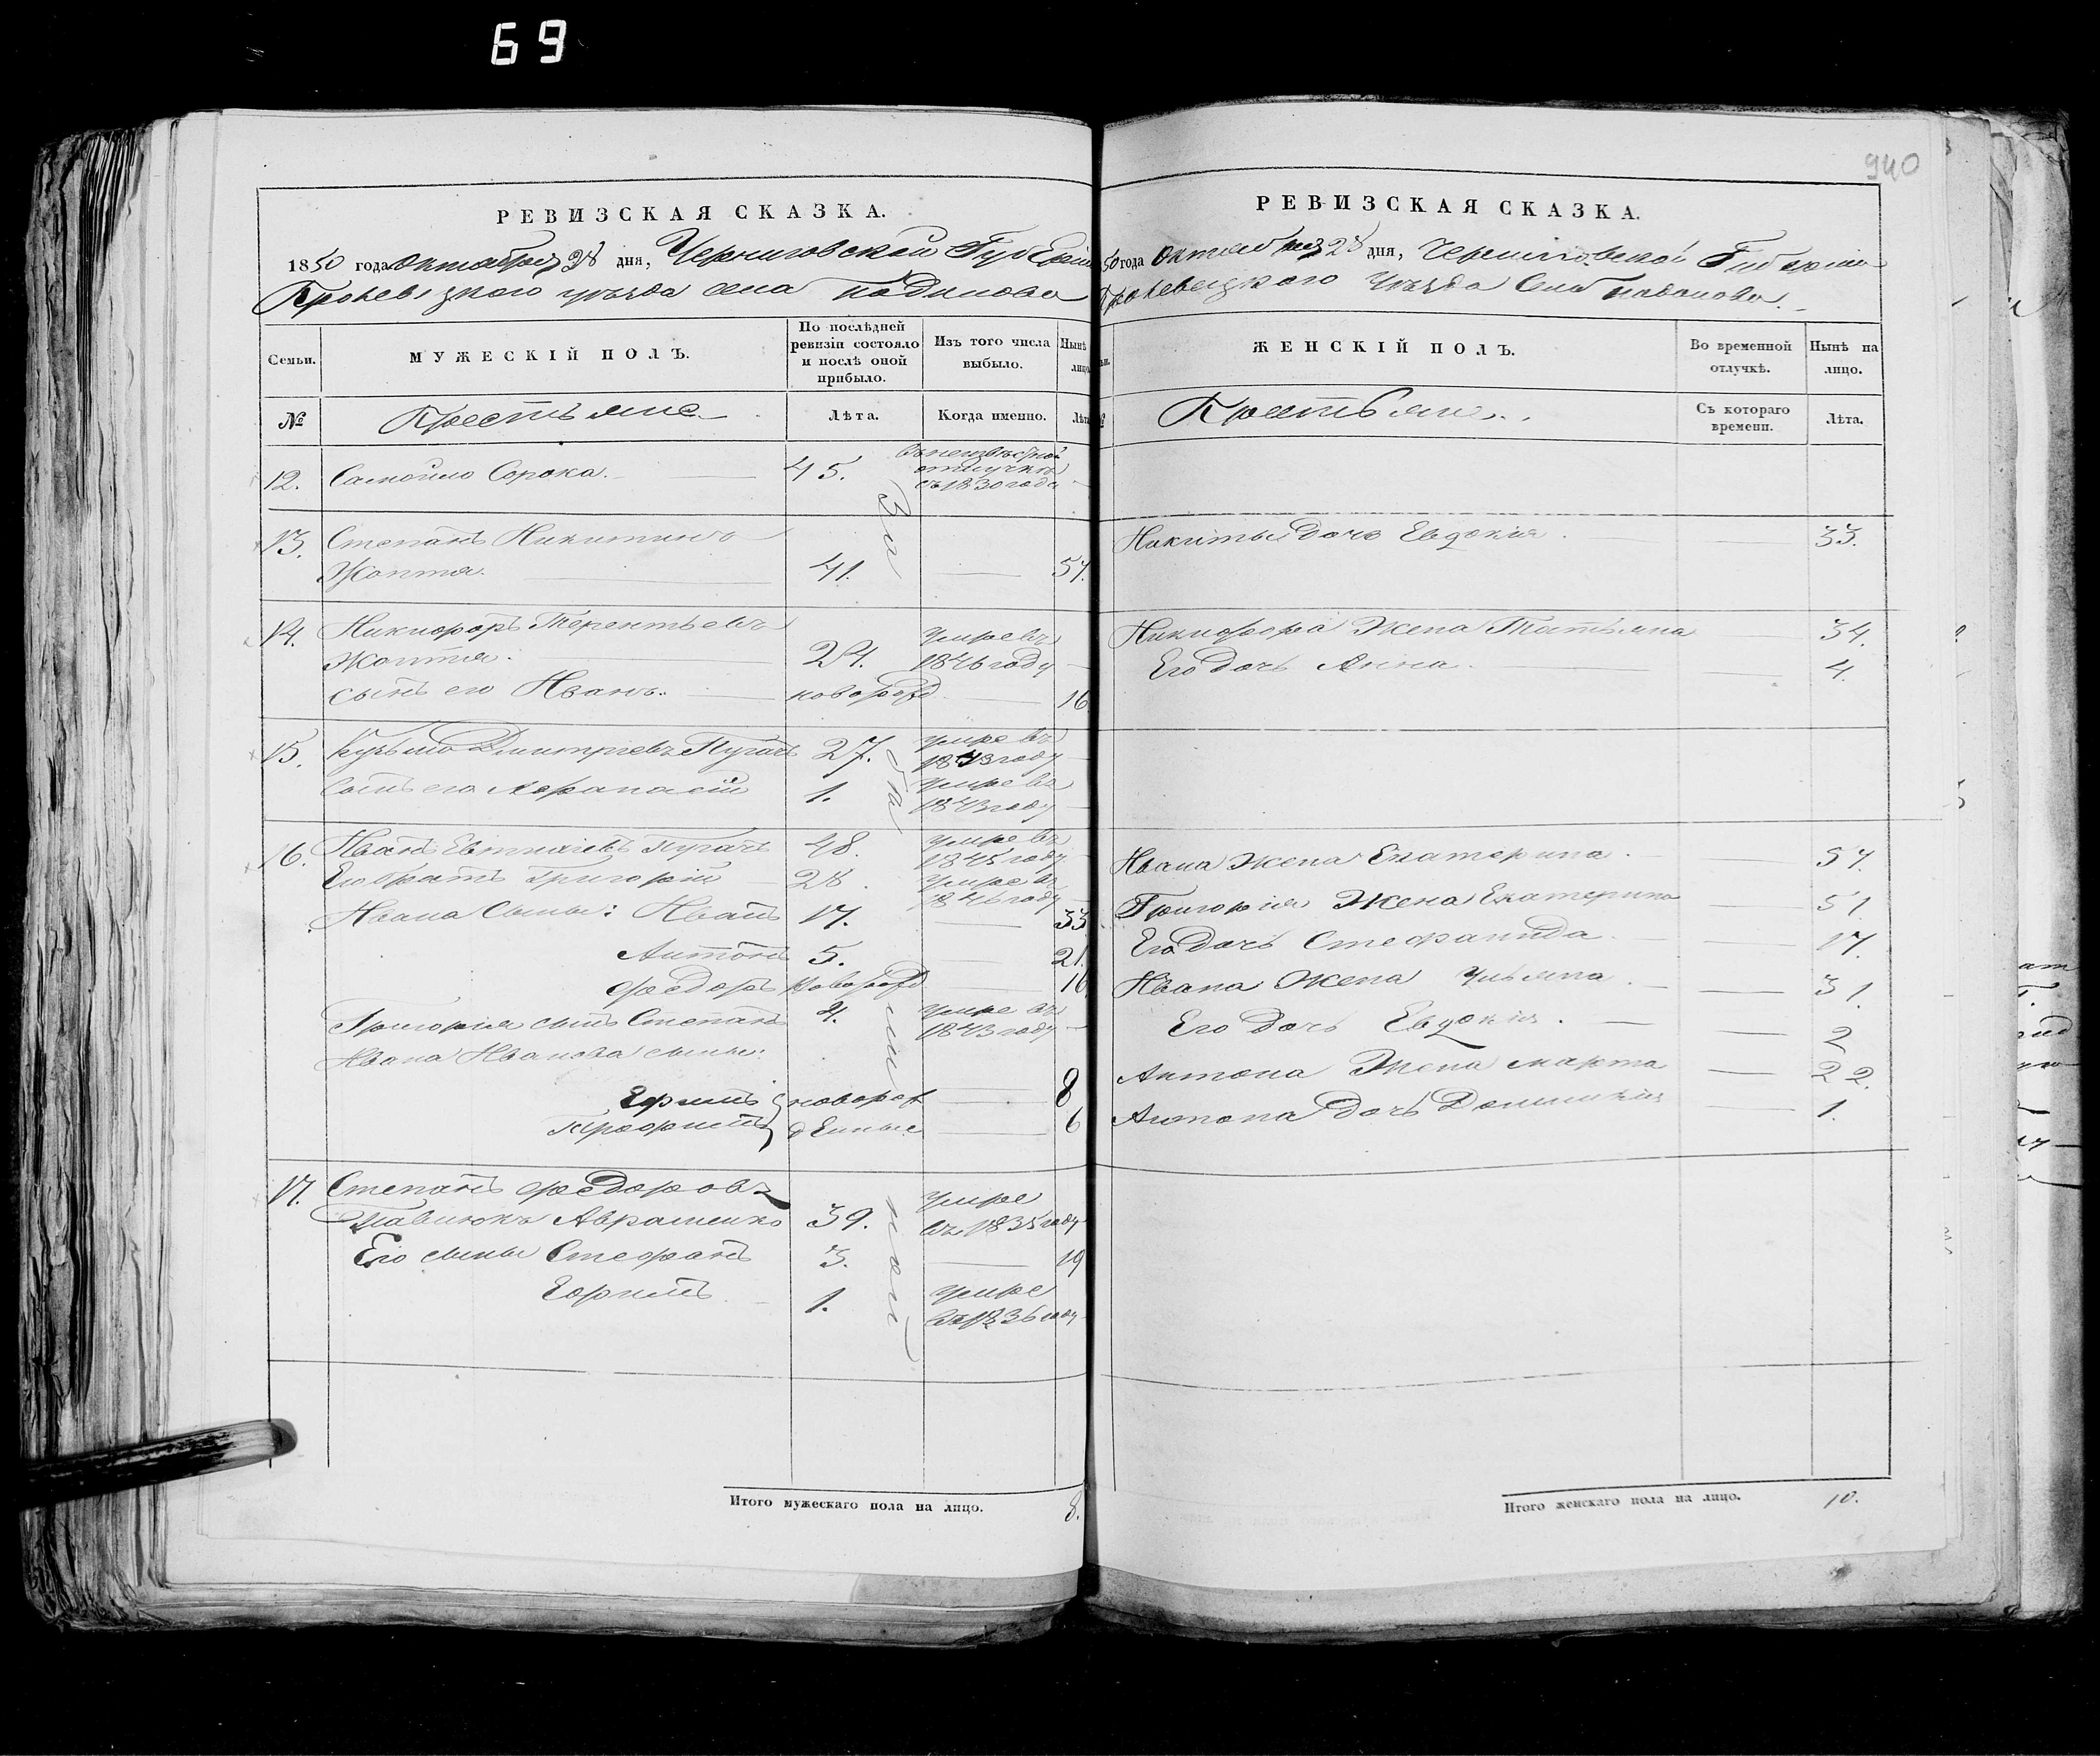 69
940
РЕВИЗСКАЯ СКАЗКА.
1850 года Октября 28 дня, Черниговской Губерніи
Кролевецкого уѣзда села
Семьи.
МУЖЕСКІЙ ПОЛЪ.
По послѣдней ревизіи состояло и послѣ оной прибыло.
Изъ того числа выбыло.
Нынѣ лицо
№
Крестьяне
Лѣта.
Когда именно.
Лѣта
12. Самойло Сорока. 45. въ неизвѣстной отлучкѣ съ 1830 года
13. Степанъ Никитинъ
Жоптя. 41. 57.
14. Никифоръ Терентьевъ
Жоптя. 24. умре въ 1846 году
сынъ его Иванъ. новорожд 16
15. Кузьма Дмитріевъ Пугачъ 27. умре въ 1843 году
Сынъ его Афанасій 1. умре въ 1843 году
16. Иванъ Евтихіевъ Пугачъ 48. умре въ 1845 году
Его братъ Григорій 28. умре въ 1846 году
Ивана Сыны: Иванъ 17. 33
Антонъ 5. 21.
Федоръ Новорожд 16
Григорія сынъ Степанъ 4. умре въ 1843 году
Ивана Иванова сыны:
Ефимъ новорож 8
денные 6
17. Степанъ Федоровъ
Павлюкъ Авраменко 39. умре въ 1835 году
Его сыны Стефанъ 3. 19
Ефимъ 1. умре въ 1836 году
За
Итого мужескаго пола на лицо. 8.
РЕВИЗСКАЯ СКАЗКА.
50 года Октября 28 дня, Черниговской Губерніи
Кролевецкого уѣзда Села
ЖЕНСКІЙ ПОЛЪ.
Во временной отлучкѣ.
Нынѣ на лицо.
Крестьяне.
Съ котораго времени.
Лѣта.
Никиты дочь Евдокія 33.
Никифора Жена Татьяна 34.
Его дочь Анна. 4.
Ивана Жена Екатерина. 57.
Григорія Жена Екатерина 51
Его дочь Стефанида 17.
Ивана Жена Ульяна. 31.
Его дочь Евдокія. 2
Антона Жена Марта 22.
Антона дочь Домникія 1.
Итого женскаго пола на лицо. 10.